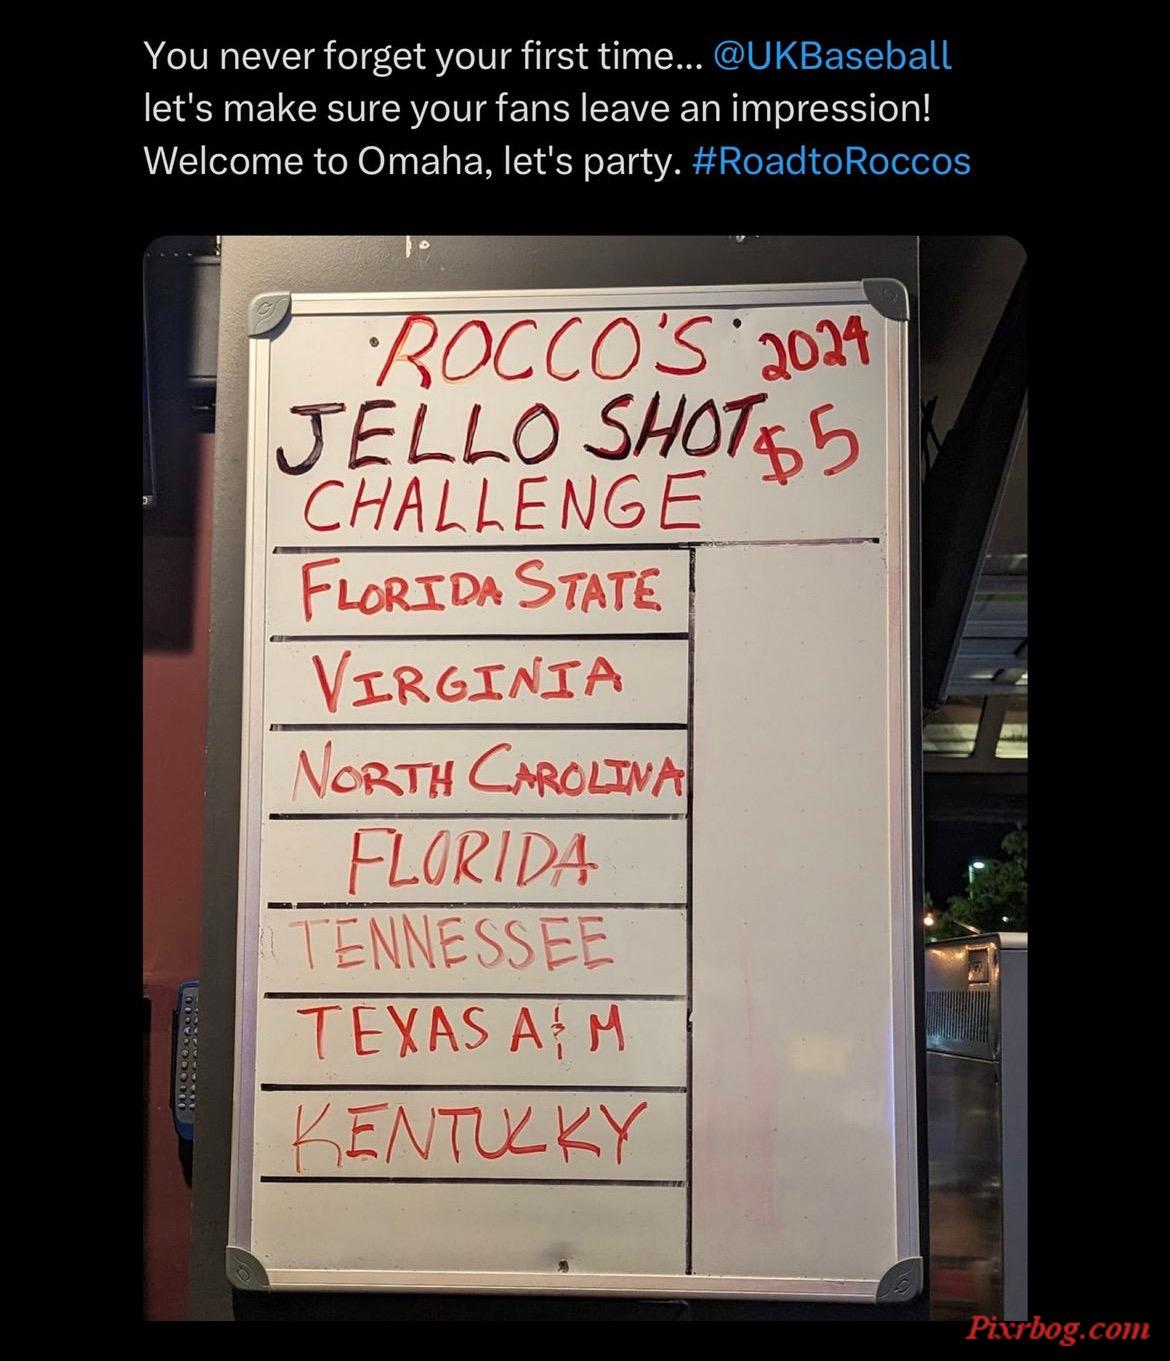 You never forget your first time... @UKBaseball
let's make sure your fans leave an impression!
Welcome to Omaha, let's party. #RoadtoRoccos
ROCCO'S 2024
JELLO SHOT $5
CHALLENGE
FLORIDA STATE
VIRGINIA
NORTH CAROLINA
FLORIDA
TENNESSEE
TEXAS A&M
KENTUCKY
Pixrbog.com